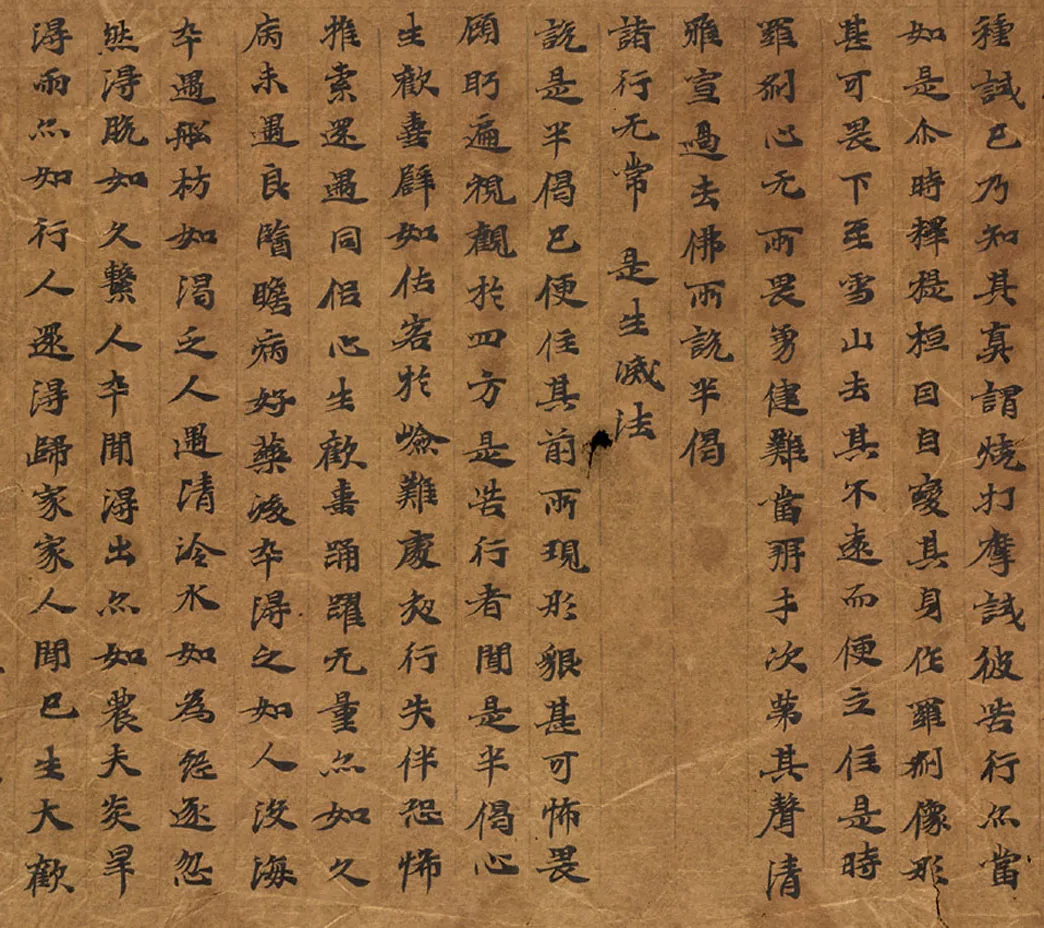 種試已乃知其真謂燒打摩試彼苦行亦當
如是尒時釋提桓因自變其身作羅刹像形
甚可畏下至雪山去其不遠而便立住是時
羅刹心无所畏勇健難當辯才次第其聲清
雅宣過去佛所說半偈
諸行无常 是生滅法
說是半偈已便住其前所現形貌甚可怖畏
顧眄遍視觀於四方是苦行者聞是半偈心
生歡喜譬如估客於嶮難處夜行失伴恐怖
推索還遇同侶心生歡喜踊躍无量亦如久
病未遇良醫瞻病好藥後卒得之如人没海
卒遇舩舫如渴乏人遇清冷水如為怨逐忽
然得脫如久繫人卒聞得出亦如農夫炎旱
得雨亦如行人還得歸家家人聞已生大歡